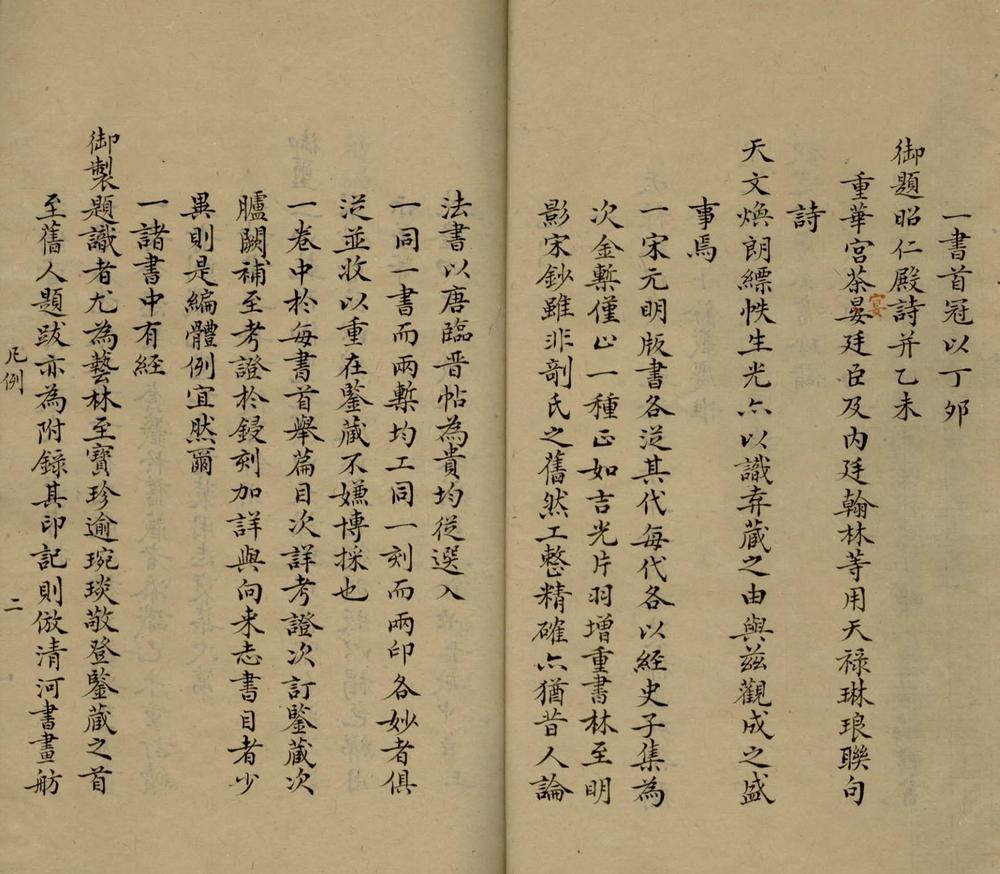 一書首冠以丁夘
御題昭仁殿詩并乙未
重華宮茶晏廷臣及內廷翰林等用天禄琳琅聯句
宴
詩
天文煥朗縹帙生光亦以識弆藏之由與兹觀成之盛
事焉
一宋元明版書各従其代每代各以経史子集為
次金槧僅止一種正如吉光片羽増重書林至明
影宋鈔雖非剞氏之舊然工整精確亦猶昔人論
法書以唐臨晋帖為貴均従選入
一同一書而兩槧均工同一刻而兩印各妙者俱
従並收以重在鑒藏不嫌博採也
一卷中於每書首舉篇目次詳考證次訂鑒藏次
臚闕補至考證於鋟刻加詳與向来志書目者少
異則是編體例宜然爾
一諸書中有経
御製題識者尤為藝林至寶珍逾琬琰敬登鑒藏之首
至舊人題跋亦為附錄其印記則倣清河書畫舫
凡例
二